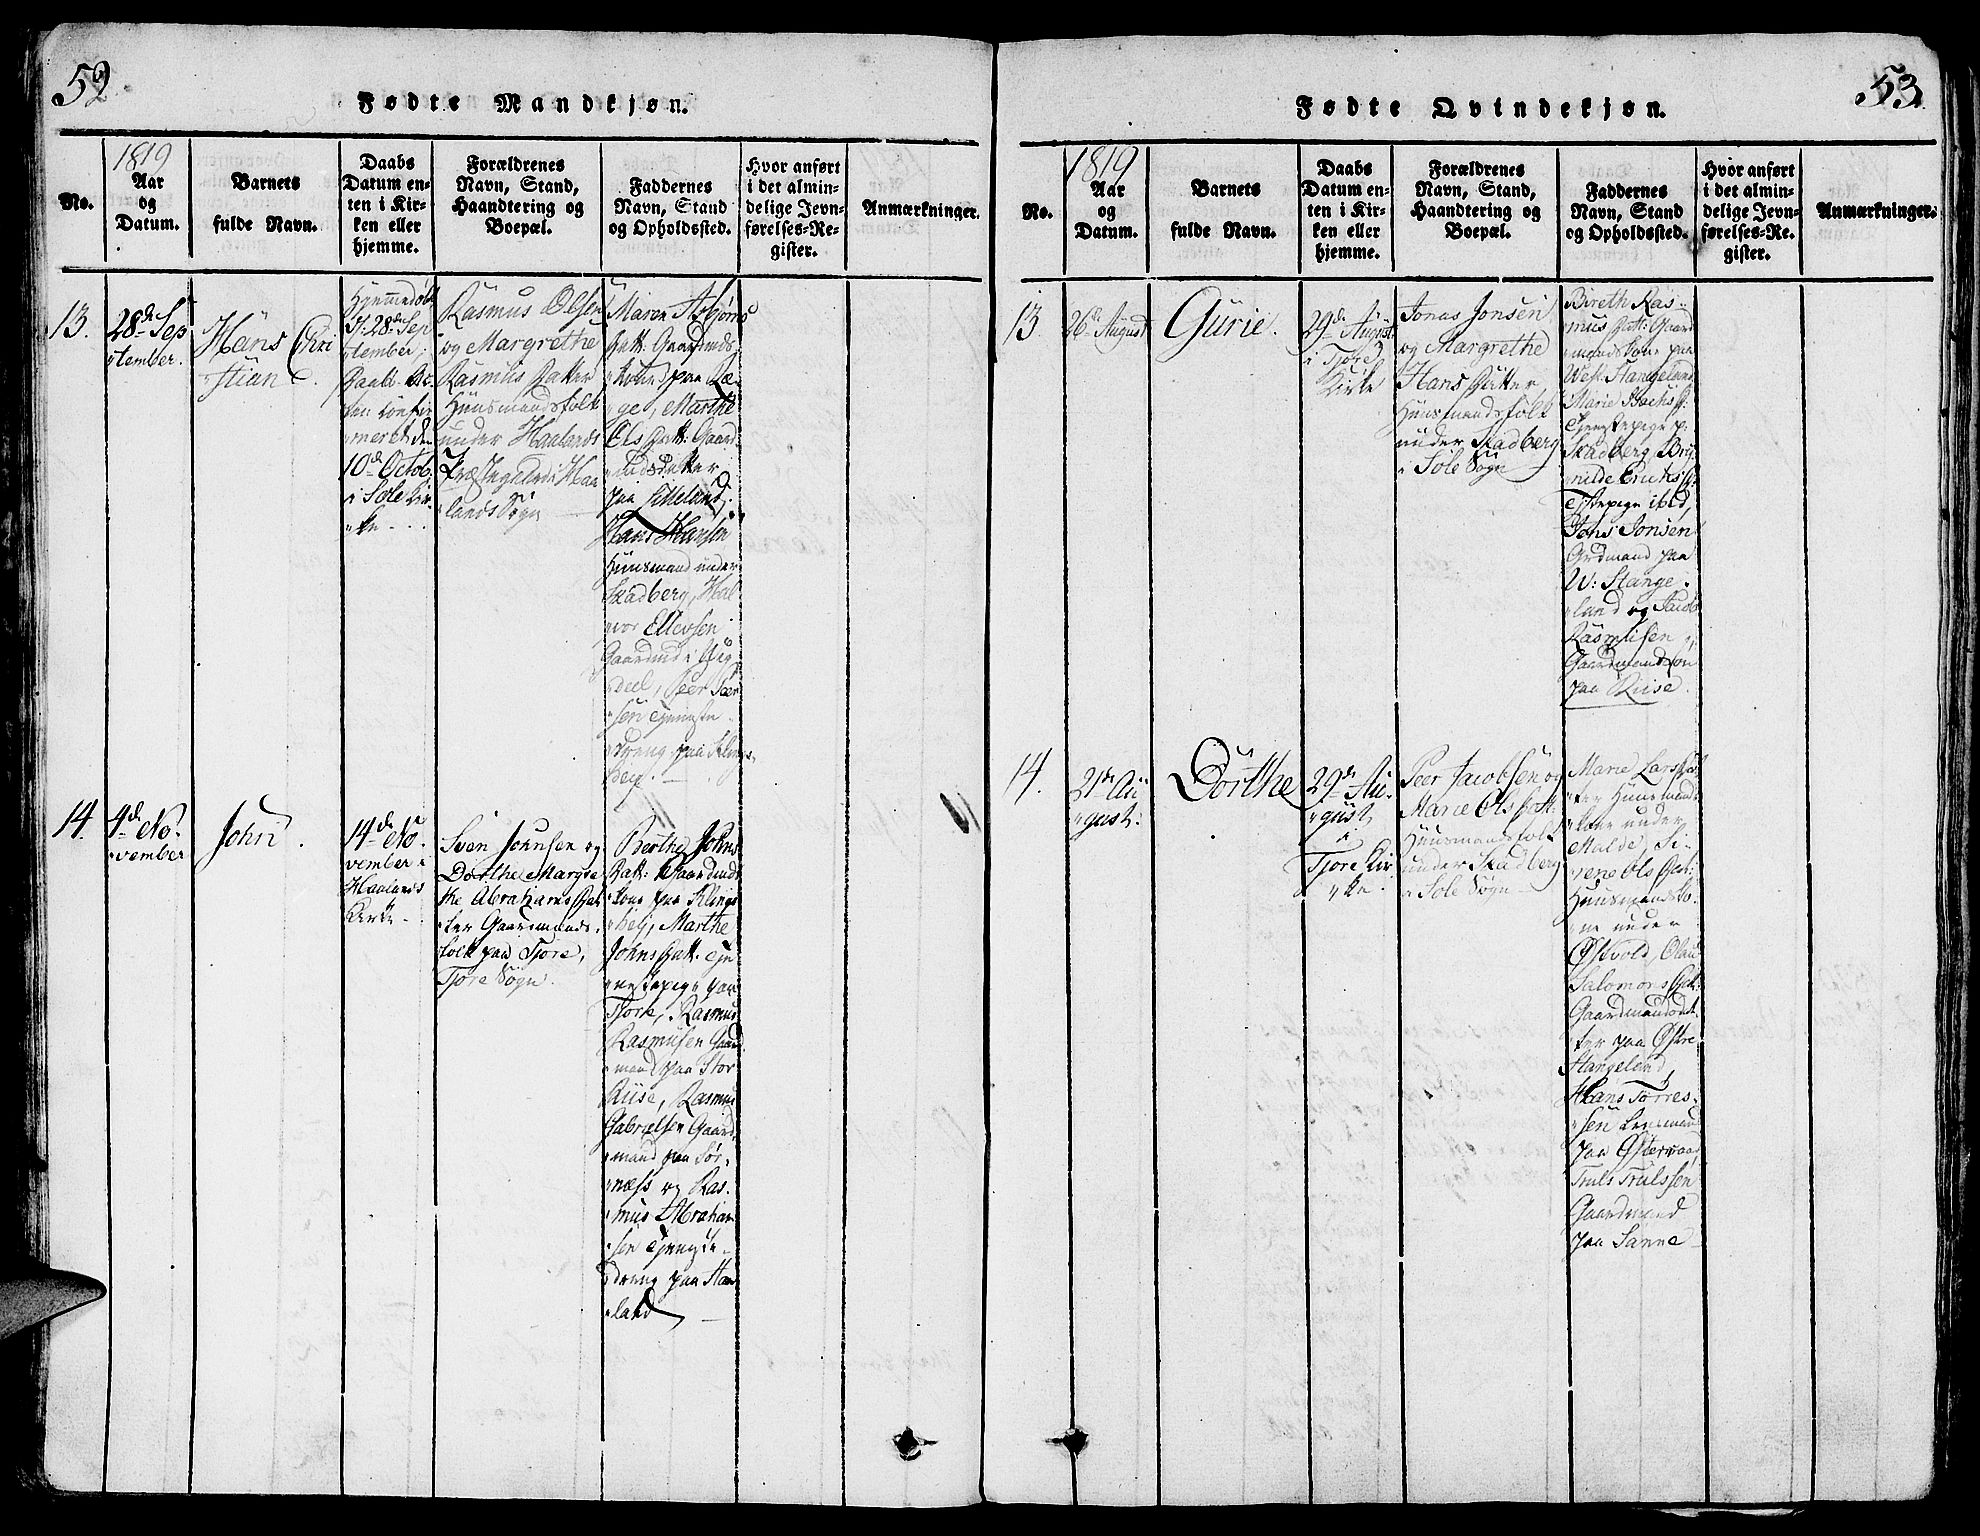 52.
Fødte Mandkjøn.
No.
1819
Aar
og
Datum.
Barnets
fulde Navn.
Daabs
Datum en-
ten i Kir-
ken eller
hjemme.
Forældrenes
Navn, Stand,
Haandtering og
Boepæl.
Faddernes
Navn, Stand
og Opholdssted.
Hvor anført
i det almin-
delige Jevn-
førelses-Re-
gister.
Anmærkninger.
13.
28de Sep
tember.
Hans Chri
stian
Hjemmedøbt
28de Sep
tember,
Daab
10de Octob.
i Sole Kir-
ke
Rasmus Olsen
og Margrethe
Rasmus Datter
Huusmandsfolk
under Haalands
Præstegaard i Haa
lands Sogn
Maren Asbjørns
Datt: Gaardmds
kone paa Ræ-
ge, Marthe
Ols Datt: Gaard
mdsdatter
paa Lilleland,
Hans Hansen
Huusmand under
Skadberg, Hal
vor Ellevsen
Gaardmd i
Peer Peer
sen Tjeneste
dreng paa Klings
berg.
14.
4de No-
vember
John.
14de No-
vember i
Haalands
Kirke
Sven Johnsen og
Dorthe Margre
the Abrahams Dat
ter Gaardmands-
folk paa Tjore,
Tjore Sogn.
Berthe Johns
Datt: Gaardmds
kone paa Klings
berg, Marthe
Johns Datt: Tje
nestepige paa
Tjore, Rasmus
Rasmusen Gaard
mand paa Stor
Riise, Rasmus
Gabrielsen Gaard
mand paa Sør-
næss og Ras-
mus Abraham
sen Tjeneste-
dreng paa Haa
land
53.
Fødte Qvindekjøn.
No.
1819
Aar
og
Datum.
Barnets
fulde Navn.
Daabs
Datum en-
ten i Kir-
ken eller
hjemme.
Forældrenes
Navn, Stand,
Haandtering og
Boepæl.
Faddernes
Navn, Stand
og Opholdssted.
Hvor anført
i det almin-
delige Jevn-
førelses-Re-
gister.
Anmærkninger.
13.
26de August
Gurie.
29de August
i Tjore
Kirke
Jonas Jonsen
og Margrethe
Hans Datter,
Huusmandsfolk
under Skadberg
i Sole Sogn
Bireth Ras-
mus Datt: Gaard
mandskone paa
West. Stangeland
Marie
Tjenstepige p.
Skadberg,
Erichs D:
Tjstepige ibid,
Jons Jonsen
Grdmand paa
W: Stange-
land og Jacob
Rasmusen
Gaardmandssøn
paa Riise.
14.
21de Au
gust.
Dorthe
29de Au-
gust
i
Tjore Kir
ke.
Peer Jacobsen og
Marie Ols Datt:
Huusmandsfolk
under Skadberg
i Sole Sogn
Marie Lars Dat
ter Huusmands
kone under
Malde, Si-
rene Ols Datt:
Huusmandsko-
ne under
Østvold, Olau
Salomons Dat:
Gaardmandsdat
ter paa Østre
Stangeland,
Hans Torres-
sen Lensmand
paa Østeraad,
Truls Trulssen
Gaardmand
paa Sanne